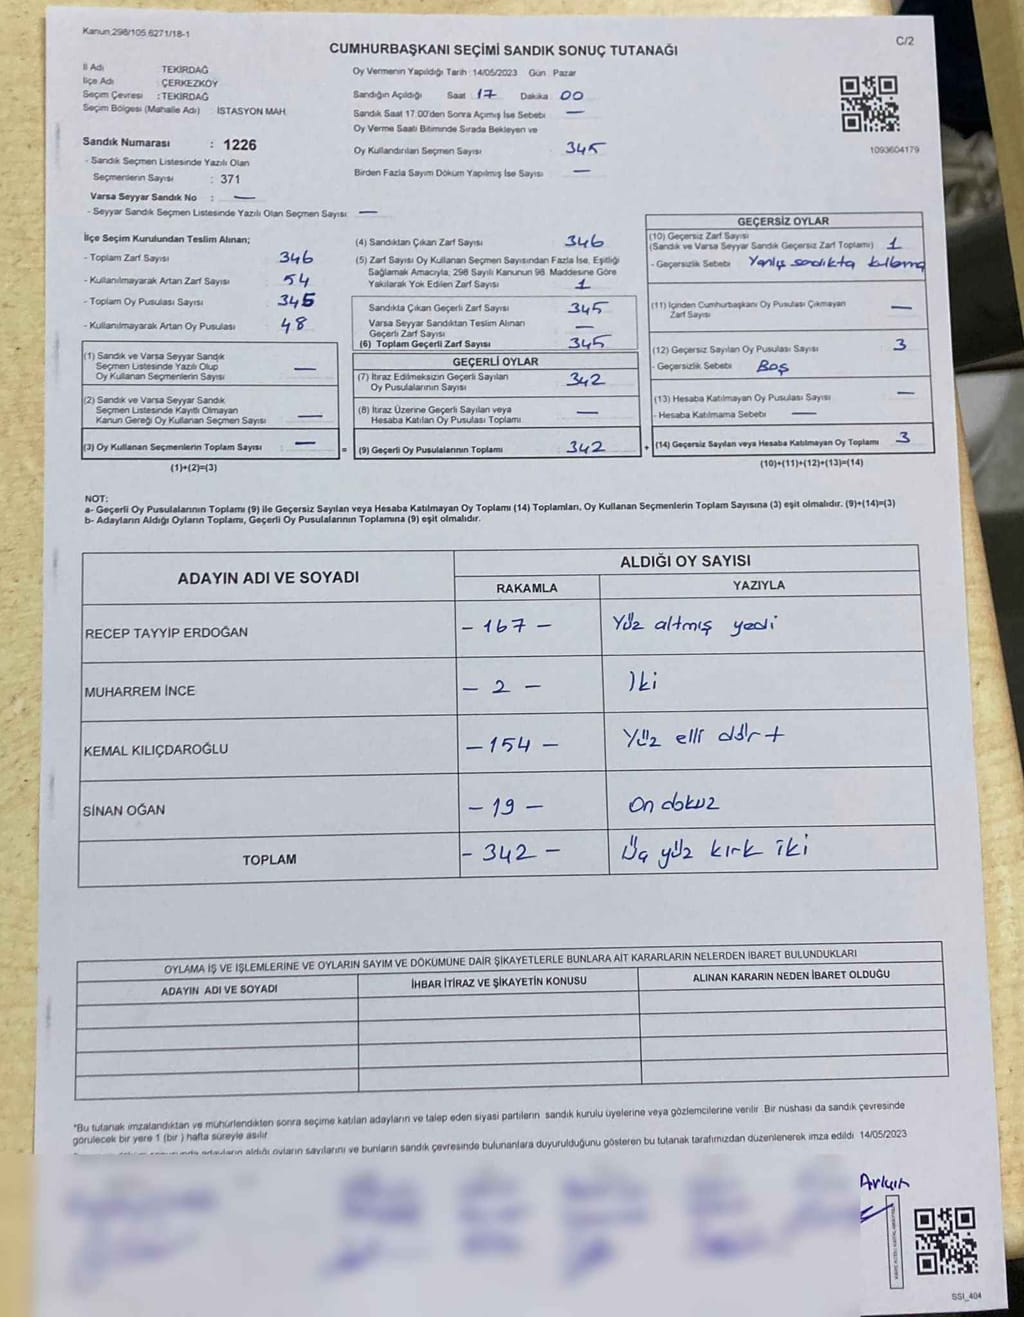 Kanun,298/105,6271/18-1
CUMHURBAŞKANI SEÇİMİ SANDIK SONUÇ TUTANAĞI
C/2
İl Adı TEKİRDAĞ
İlçe Adı ÇERKEZKÖY
Seçim Çevresi : TEKİRDAĞ
Seçim Bölgesi (Mahalle Adı) İSTASYON MAH.
Sandık Numarası : 1226
- Sandık Seçmen Listesinde Yazılı Olan
Seçmenlerin Sayısı : 371
Varsa Seyyar Sandık No : —
- Seyyar Sandık Seçmen Listesinde Yazılı Olan Seçmen Sayısı —
Oy Vermenin Yapıldığı Tarih 14/05/2023 Gün Pazar
Sandığın Açıldığı Saat 17 Dakika 00
Sandık Saat 17:00'den Sonra Açımış İse Sebebi —
Oy Verme Saati Bitiminde Sırada Bekleyen ve
Oy Kullandırılan Seçmen Sayısı 345
Birden Fazla Sayım Döküm Yapılmış İse Sayısı —
1093604179
İlçe Seçim Kurulundan Teslim Alınan;
- Toplam Zarf Sayısı 346
- Kullanılmayarak Artan Zarf Sayısı 54
- Toplam Oy Pusulası Sayısı 345
- Kullanılmayarak Artan Oy Pusulası 48
(1) Sandık ve Varsa Seyyar Sandık
Seçmen Listesinde Yazılı Olup
Oy Kullanan Seçmenlerin Sayısı —
(2) Sandık ve Varsa Seyyar Sandık
Seçmen Listesinde Kayıtlı Olmayan
Kanun Gereği Oy Kullanan Seçmen Sayısı —
(3) Oy Kullanan Seçmenlerin Toplam Sayısı —
(1)+(2)=(3)
(4) Sandıktan Çıkan Zarf Sayısı 346
(5) Zarf Sayısı Oy Kullanan Seçmen Sayısından Fazla İse, Eşitliği
Sağlamak Amacıyla, 298 Sayılı Kanunun 98. Maddesine Göre
Yakılarak Yok Edilen Zarf Sayısı 1
Sandıkta Çıkan Geçerli Zarf Sayısı 345
Varsa Seyyar Sandıktan Teslim Alınan
Geçerli Zarf Sayısı —
(6) Toplam Geçerli Zarf Sayısı 345
GEÇERLİ OYLAR
(7) İtiraz Edilmeksizin Geçerli Sayılan
Oy Pusulalarının Sayısı 342
(8) İtiraz Üzerine Geçerli Sayılan veya
Hesaba Katılan Oy Pusulası Toplamı —
= (9) Geçerli Oy Pusulalarının Toplamı 342
GEÇERSİZ OYLAR
(10) Geçersiz Zarf Sayısı
(Sandık ve Varsa Seyyar Sandık Geçersiz Zarf Toplamı) 1
- Geçersizlik Sebebi Yanlış sandıkta kullanma
(11) İçinden Cumhurbaşkanı Oy Pusulası Çıkmayan
Zarf Sayısı —
(12) Geçersiz Sayılan Oy Pusulası Sayısı 3
- Geçersizlik Sebebi Boş
(13) Hesaba Katılmayan Oy Pusulası Sayısı —
- Hesaba Katılmama Sebebi —
+ (14) Geçersiz Sayılan veya Hesaba Katılmayan Oy Toplamı 3
(10)+(11)+(12)+(13)=(14)
NOT:
a- Geçerli Oy Pusulalarının Toplamı (9) ile Geçersiz Sayılan veya Hesaba Katılmayan Oy Toplamı (14) Toplamları, Oy Kullanan Seçmenlerin Toplam Sayısına (3) eşit olmalıdır. (9)+(14)=(3)
b- Adayların Aldığı Oyların Toplamı, Geçerli Oy Pusulalarının Toplamına (9) eşit olmalıdır.
ADAYIN ADI VE SOYADI ALDIĞI OY SAYISI
RAKAMLA YAZIYLA
RECEP TAYYİP ERDOĞAN - 167 - Yüz altmış yedi
MUHARREM İNCE - 2 - İki
KEMAL KILIÇDAROĞLU - 154 - Yüz elli dört
SİNAN OĞAN - 19 - On dokuz
TOPLAM - 342 - Üç yüz kırk iki
OYLAMA İŞ VE İŞLEMLERİNE VE OYLARIN SAYIM VE DÖKÜMÜNE DAİR ŞİKAYETLERLE BUNLARA AİT KARARLARIN NELERDEN İBARET BULUNDUKLARI
ADAYIN ADI VE SOYADI İHBAR İTİRAZ VE ŞİKAYETİN KONUSU ALINAN KARARIN NEDEN İBARET OLDUĞU
*Bu tutanak imzalandıktan ve mühürlendikten sonra seçime katılan adayların ve talep eden siyasi partilerin sandık kurulu üyelerine veya gözlemcilerine verilir. Bir nüshası da sandık çevresinde
görülecek bir yere 1 (bir) hafta süreyle asılır
adayların aldığı oyların sayılarını ve bunların sandık çevresinde bulunanlara duyurulduğunu gösteren bu tutanak tarafımızdan düzenlenerek imza edildi 14/05/2023
SSI_404